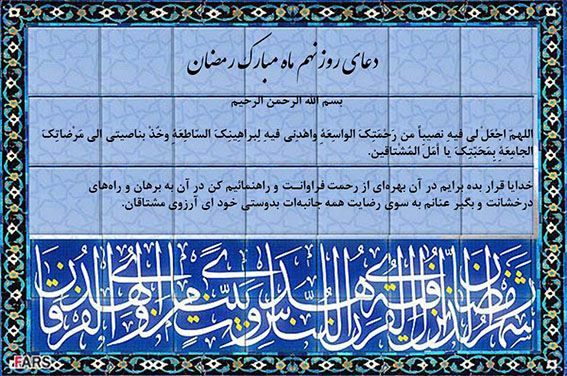 دعای روز نهم ماه مبارک رمضان
بسم الله الرحمن الرحیم
اللهمّ اجْعَلْ لی فیهِ نصیباً من رَحْمَتِکَ الواسِعَةِ واهْدِنی فیهِ لِبراهِینِکَ السّاطِعَةِ وخُذْ بناصیتی الی مَرْضاتِکَ
الجامِعَةِ بِمَحَبّتِکَ یا أمَلَ المُشْتاقین.
خدایا قرار بده برایم در آن بهره‌ای از رحمت فراوانت و راهنمائیم کن در آن به برهان و راه‌های
درخشانت و بگیر عنانم به سوی رضایت همه جانبه‌ات بدوستی خود ای آرزوی مشتاقان.
شهر رمضان الذی انزل فیه القرآن هدی للناس و بینت من الهدی و الفرقان
FARS